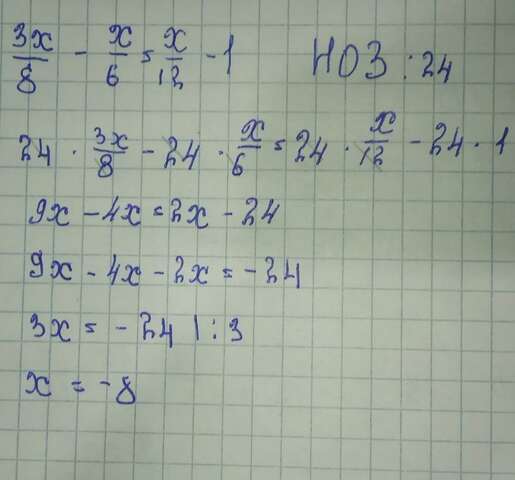 3x/8 - x/6 = x/12 - 1 НОЗ : 24
24 · 3x/8 - 24 · x/6 = 24 · x/12 - 24 · 1
9x - 4x = 2x - 24
9x - 4x - 2x = -24
3x = - 24 | : 3
x = -8